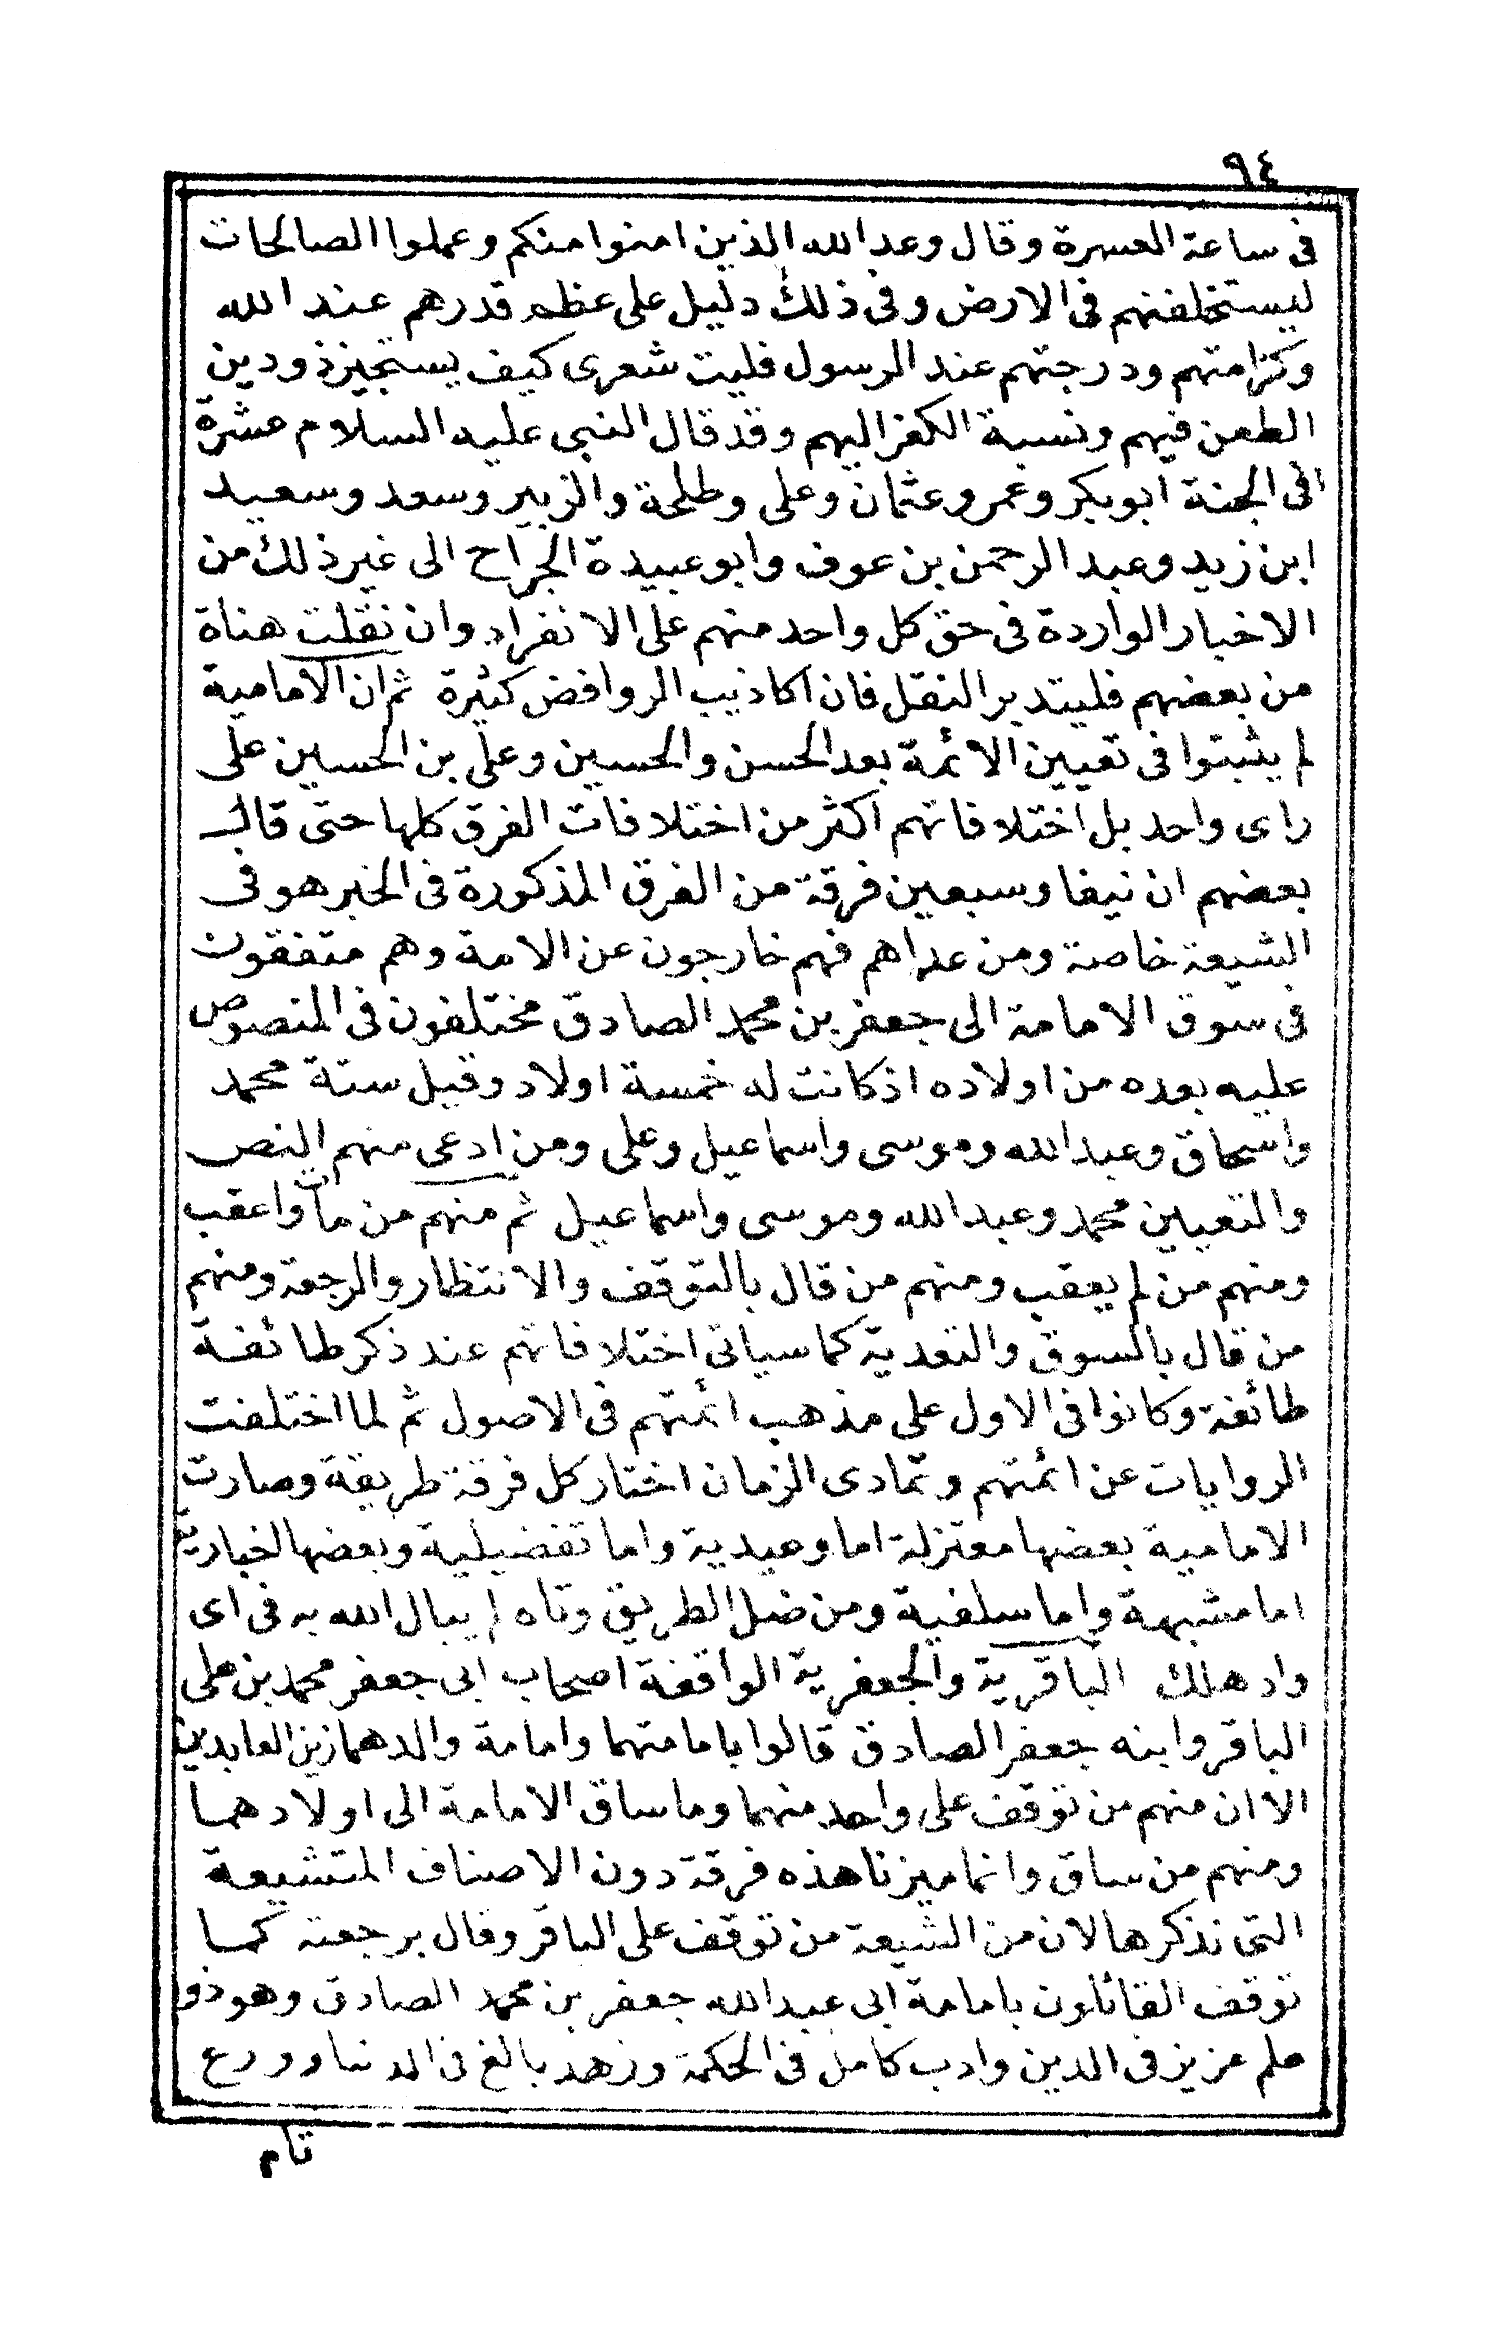 ٩٤
فى ساعة العسرة وقال وعد الله الذين امنوا منكم وعملوا الصالحات
ليستخلفنهم فى الارض وفى ذلك دليل على عظم قدرهم عند الله
وكرامتهم ودرجتهم عند الرسول فليت شعرى كيف يستجيز ذو دين
الطعن فيهم ونسبة الكفر اليهم وقد قال النبى عليه السلام عشرة
فى الجنة ابو بكر وعمر وعثمان وعلى وطلحة والزبير وسعد وسعيد
ابن زيد وعبد الرحمن بن عوف وابو عبيدة الجراح الى غير ذلك من
الاخبار الواردة فى حق كل واحد منهم على الانفراد وان نقلت هناة
من بعضهم فليتدبر النقل فان اكاذيب الروافض كثيرة ثم ان الامامية
لم يثبتوا فى تعيين الائمة بعد الحسن والحسين وعلى بن الحسين على
راى واحد بل اختلافاتهم اكثر من اختلافات الفرق كلها حتى قال
بعضهم ان نيفا وسبعين فرقة من الفرق المذكورة فى الخبر هو فى
الشيعة خاصة ومن عداهم فهم خارجون عن الامة وهم متفقون
فى سوق الامامة الى جعفر بن محمد الصادق مختلفون فى المنصوص
عليه بعده من اولاده اذ كانت له خمسة اولاد وقيل ستة محمد
واسحاق وعبد الله وموسى واسماعيل وعلى ومن ادعى منهم النص
والتعيين محمد وعبد الله وموسى واسماعيل ثم منهم من مات واعقب
ومنهم من لم يعقب ومنهم من قال بالتوقف والانتظار والرجعة ومنهم
من قال بالسوق والتعدية كما سياتى اختلافاتهم عند ذكر طائفة
طائفة وكانوا فى الاول على مذهب ائمتهم فى الاصول ثم لما اختلفت
الروايات عن ائمتهم وتمادى الزمان اختار كل فرقة طريقة وصارت
الامامية بعضها معتزلة اما وعيدية واما تفضيلية وبعضها اخبارية
اما مشبهة واما سلفية ومن ضل الطريق وتاه لم يبال الله به فى اى
واد هلك الباقرية والجعفرية الواقفة اصحاب ابى جعفر محمد بن على
الباقر وابنه جعفر الصادق قالوا بامامتهما وامامة والدهما زين العابدين
الا ان منهم من توقف على واحد منهما وما ساق الامامة الى اولادهما
ومنهم من ساق وانما ميزنا هذه فرقة دون الاصناف المتشيعة
التى نذكرها لان من الشيعة من توقف على الباقر وقال برجعته كما
توقف القائلون بامامة ابى عبد الله جعفر بن محمد الصادق وهو ذو
علم عزيز فى الدين وادب كامل فى الحكمة وزهد بالغ فى الدنيا وورع
تام